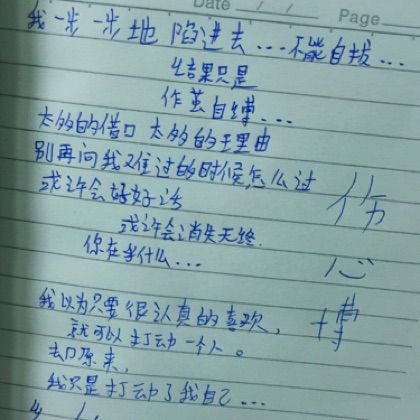 Date / / Page
我一步一步地陷进去...不能自拔...
结果只是
作茧自缚...
太多的借口 太多的理由
别再问我难过的时候怎么过
或许会好好活
或许会消失无终.
你在乎什么...
伤
心
我以为只要很认真的喜欢,
就可以打动一个人。
却原来,
我只是打动了我自己...